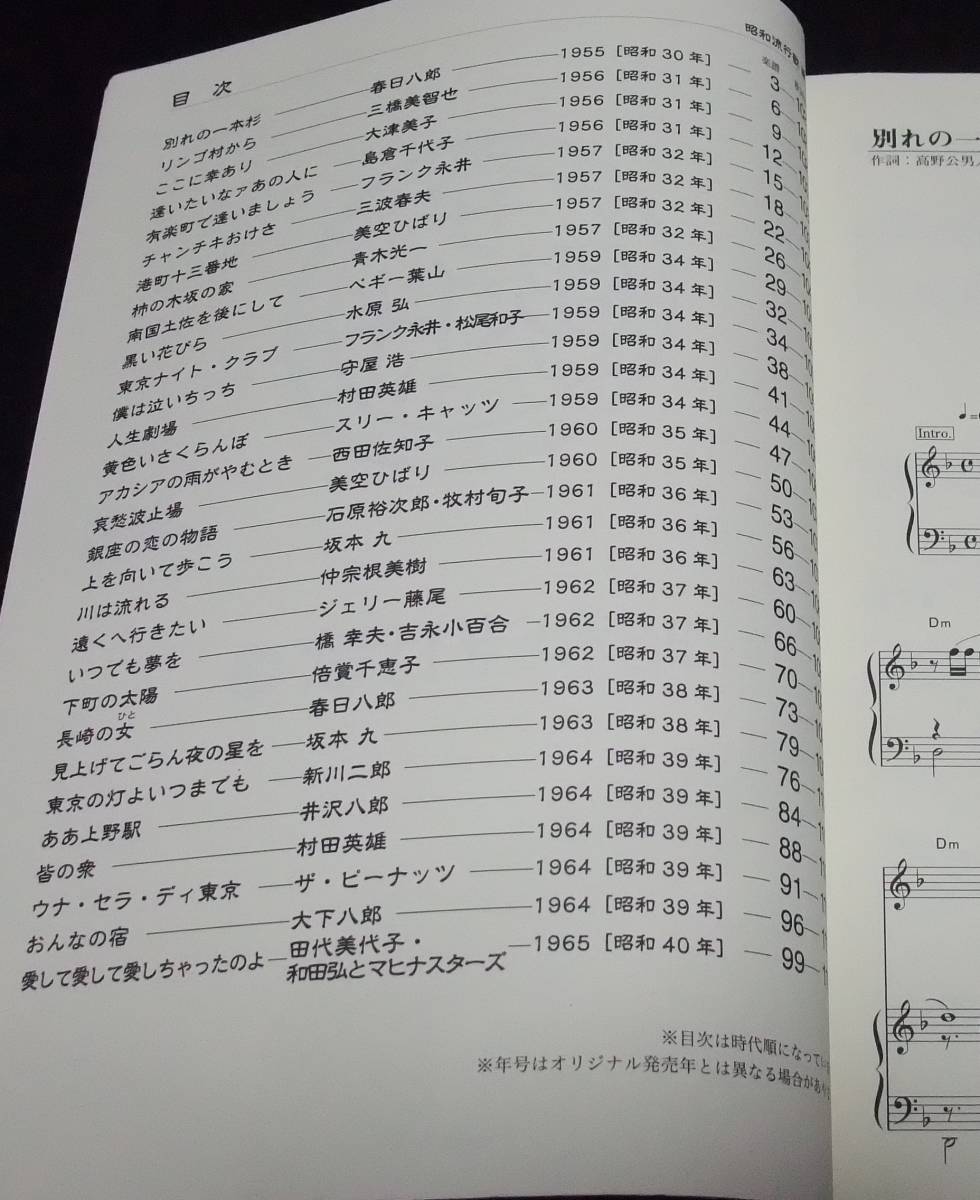 目 次
昭和流行歌
楽譜
別れの一本杉 春日八郎 1955 [昭和 30 年] 3
リンゴ村から 三橋美智也 1956 [昭和 31 年] 6
ここに幸あり 大津美子 1956 [昭和 31 年] 9
逢いたいなァあの人に 島倉千代子 1956 [昭和 31 年] 12
有楽町で逢いましょう フランク永井 1957 [昭和 32 年] 15
チャンチキおけさ 三波春夫 1957 [昭和 32 年] 18
港町十三番地 美空ひばり 1957 [昭和 32 年] 22
柿の木坂の家 青木光一 1957 [昭和 32 年] 26
南国土佐を後にして ペギー葉山 1959 [昭和 34 年] 29
黒い花びら 水原 弘 1959 [昭和 34 年] 32
東京ナイト・クラブ フランク永井・松尾和子 1959 [昭和 34 年] 34
僕は泣いちっち 守屋 浩 1959 [昭和 34 年] 38
人生劇場 村田英雄 1959 [昭和 34 年] 41
黄色いさくらんぼ スリー・キャッツ 1959 [昭和 34 年] 44
アカシアの雨がやむとき 西田佐知子 1960 [昭和 35 年] 47
哀愁波止場 美空ひばり 1960 [昭和 35 年] 50
銀座の恋の物語 石原裕次郎・牧村旬子 1961 [昭和 36 年] 53
上を向いて歩こう 坂本 九 1961 [昭和 36 年] 56
川は流れる 仲宗根美樹 1961 [昭和 36 年] 63
遠くへ行きたい ジェリー藤尾 1962 [昭和 37 年] 60
いつでも夢を 橋 幸夫・吉永小百合 1962 [昭和 37 年] 66
下町の太陽 倍賞千恵子 1962 [昭和 37 年] 70
長崎の女 ひと 春日八郎 1963 [昭和 38 年] 73
見上げてごらん夜の星を 坂本 九 1963 [昭和 38 年] 79
東京の灯よいつまでも 新川二郎 1964 [昭和 39 年] 76
ああ上野駅 井沢八郎 1964 [昭和 39 年] 84
皆の衆 村田英雄 1964 [昭和 39 年] 88
ウナ・セラ・ディ東京 ザ・ピーナッツ 1964 [昭和 39 年] 91
おんなの宿 大下八郎 1964 [昭和 39 年] 96
愛して愛して愛しちゃったのよ 田代美代子・ 1965 [昭和 40 年] 99
和田弘とマヒナスターズ
※目次は時代順になってい
※年号はオリジナル発売年とは異なる場合があ
別れの一
作詞：高野公男
Intro.
Dm
Dm